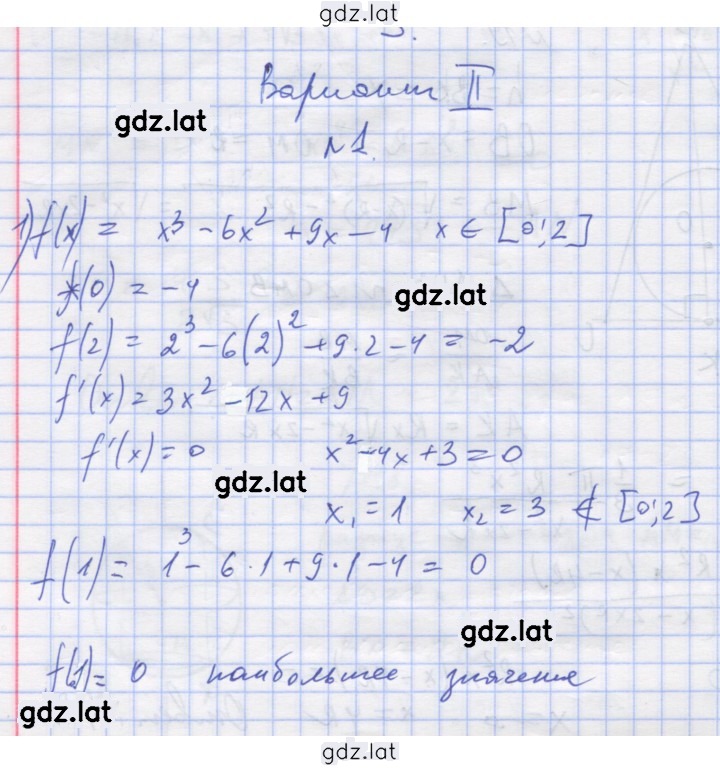 gdz.lat
Вариант II
gdz.lat
№1.
1) f(x) = x³ - 6x² + 9x - 4 x ∈ [0; 2]
f(0) = -4
gdz.lat
f(2) = 2³ - 6(2)² + 9·2 - 4 = -2
f'(x) = 3x² - 12x + 9
f'(x) = 0 x² - 4x + 3 = 0
gdz.lat
x₁ = 1 x₂ = 3 ∉ [0; 2]
f(1) = 1³ - 6·1 + 9·1 - 4 = 0
gdz.lat
f(1) = 0 наибольшее значение
gdz.lat
gdz.lat